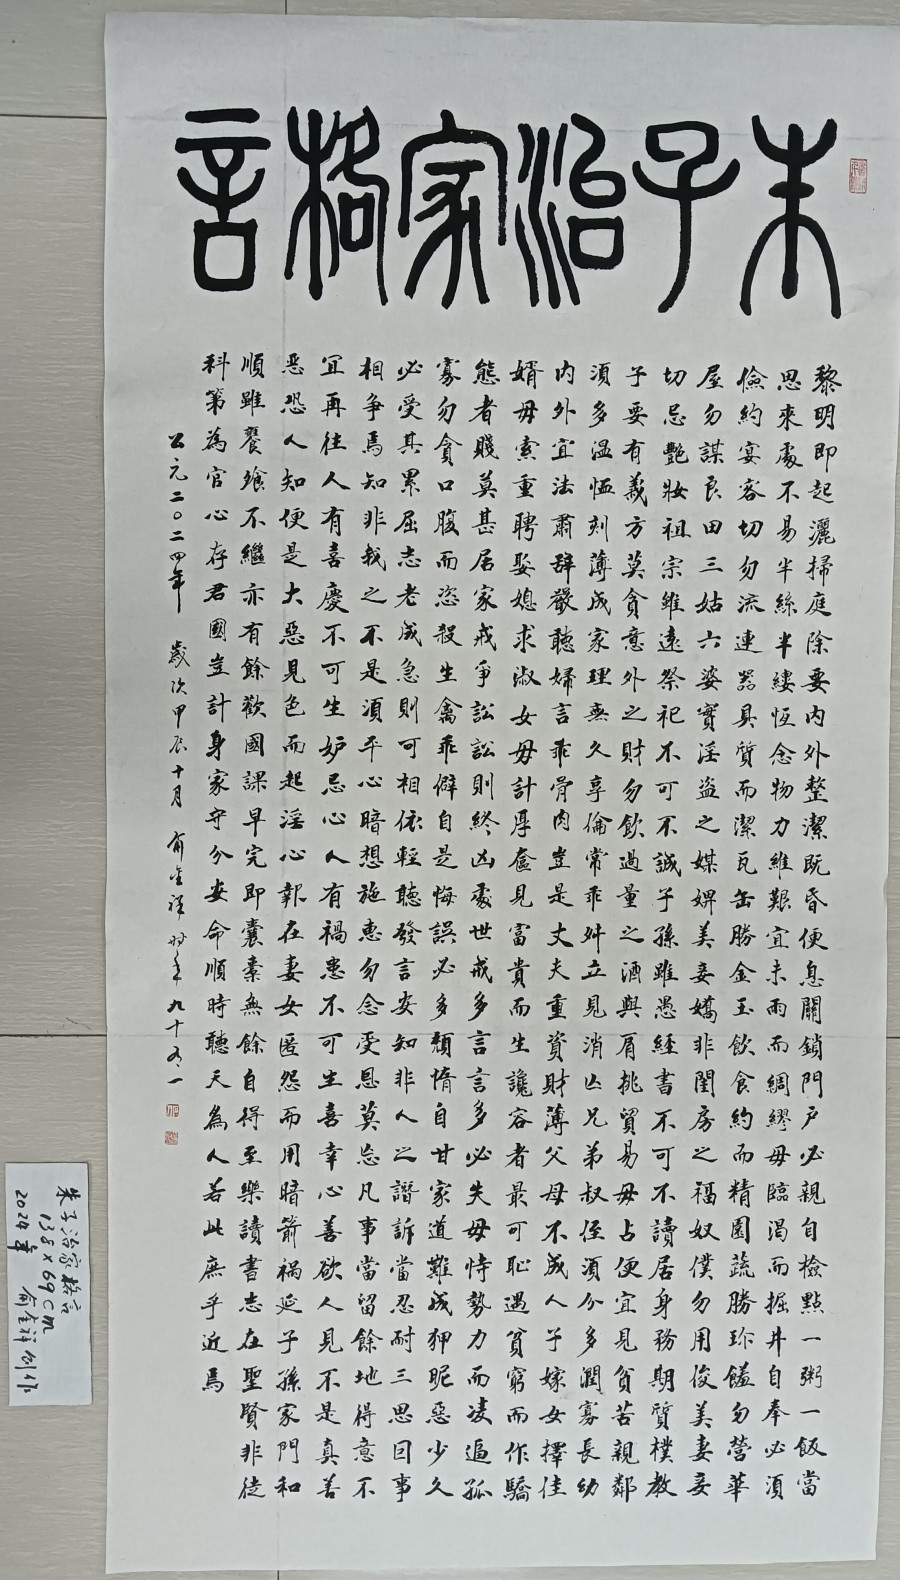 朱子治家格言
黎明即起灑掃庭除要內外整潔既昏便息關鎖門戶必親自檢點一粥一飯當
思來處不易半絲半縷恆念物力維艱宜未雨而綢繆毋臨渴而掘井自奉必須
儉約宴客切勿流連器具質而潔瓦缶勝金玉飲食約而精園蔬勝珍饈勿營華
屋勿謀良田三姑六婆實淫盜之媒婢美妾嬌非閨房之福奴僕勿用俊美妻妾
切忌艷妝祖宗雖遠祭祀不可不誠子孫雖愚經書不可不讀居身務期質樸教
子要有義方莫貪意外之財勿飲過量之酒與肩挑貿易毋占便宜見貧苦親鄰
須多溫恤刻薄成家理無久享倫常乖舛立見消亡兄弟叔侄須分多潤寡長幼
內外宜法肅辭嚴聽婦言乖骨肉豈是丈夫重資財薄父母不成人子嫁女擇佳
婿毋索重聘娶媳求淑女毋計厚奩見富貴而生讒容者最可恥遇貧窮而作驕
態者賤莫甚居家戒爭訟訟則終凶處世戒多言言多必失毋恃勢力而凌逼孤
寡勿貪口腹而恣殺生禽乖僻自是悔誤必多頹惰自甘家道難成狎昵惡少久
必受其累屈志老成急則可相依輕聽發言安知非人之譖訴當忍耐三思因事
相爭焉知非我之不是須平心暗想施惠勿念受恩莫忘凡事當留餘地得意不
宜再往人有喜慶不可生妒忌心人有禍患不可生喜幸心善欲人見不是真善
惡恐人知便是大惡見色而起淫心報在妻女匿怨而用暗箭禍延子孫家門和
順雖饔飧不繼亦有餘歡國課早完即囊橐無餘自得至樂讀書志在聖賢非徒
科第為官心存君國豈計身家守分安命順時聽天為人若此庶乎近焉
公元二〇二四年 歲次甲辰十月 俞金祥時年九十又一
朱子治家格言
138×69cm
2024年 俞金祥创作